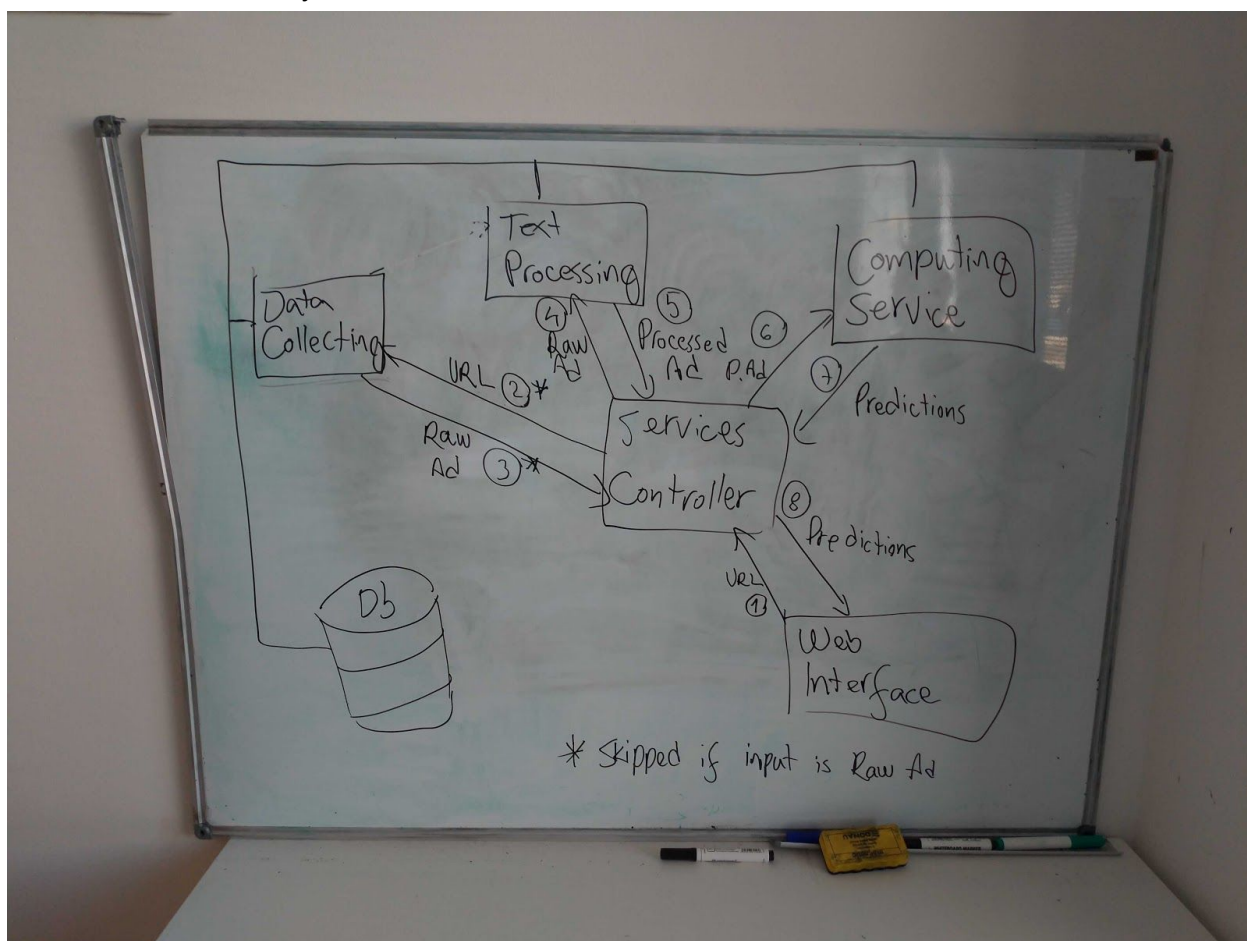 Text
Processing
Computing
Service
Data
Collecting
④
Raw
Ad
⑤
Processed
Ad
⑥
P.Ad
⑦
Predictions
URL ②*
Raw
Ad ③*
Services
Controller
⑧
Predictions
URL
①
Db
Web
Interface
* Skipped if input is Raw Ad